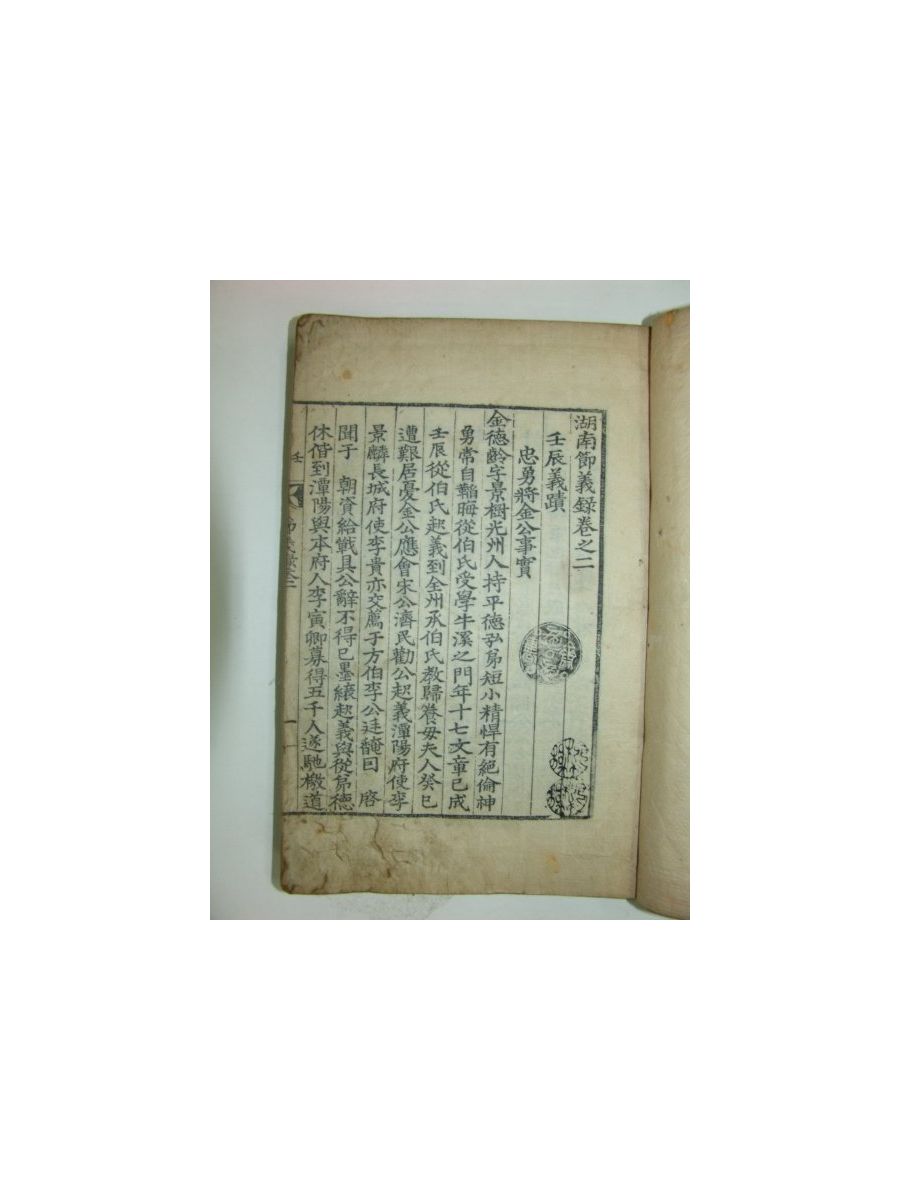 湖南節義錄卷之二
壬辰義蹟
忠勇將金公事實
金德齡字景樹光州人持平德弘弟短小精悍有絕倫神
勇常自韜晦從伯氏受學牛溪之門年十七文章已成
壬辰從伯氏起義到全州承伯氏敎歸養母夫人癸巳
遭艱居憂金公應會宋公濟民勸公起義潭陽府使李
景麟長城府使李貴亦交薦于方伯李公廷馣曰 啓
聞于 朝資給戰具公辭不得已墨縗起義與從弟德
休偕到潭陽與本府人李寅卿募得五千人遂馳檄道
壬